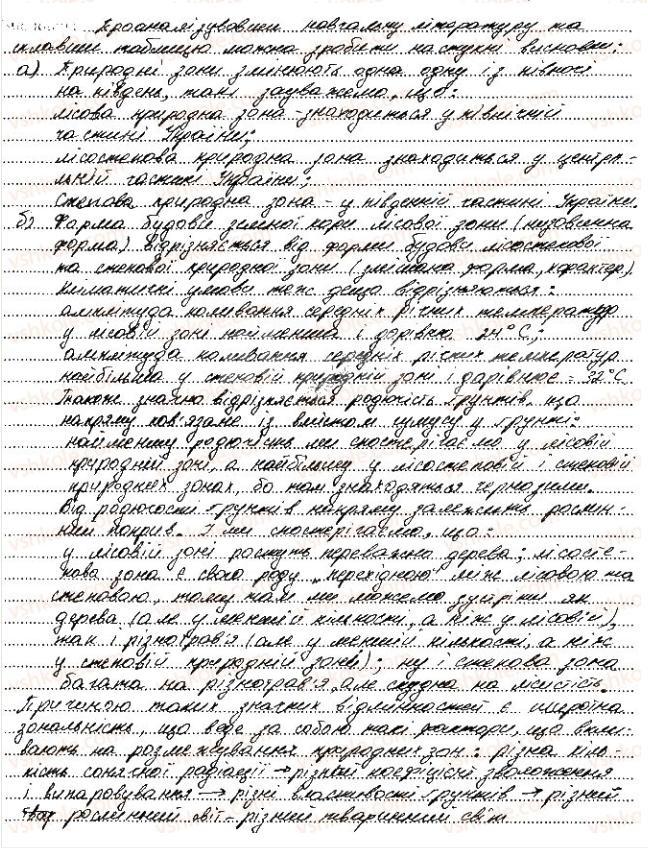 Проаналізувавши навчальну літературу та
склавши таблицю можна зробити наступні висновки:
а) Природні зони змінюють одна одну із півночі
на південь, тані зауважимо, що:
лісова природна зона знаходиться у північній
частині України;
лісостепова природна зона знаходиться у центра-
льній частині України;
степова природна зона - у південній частині України.
б) Форма будови земної кори лісової зони (
форма) відрізняється від форми будови лісостепової
та степової природно зони (змішана форма, характер)
Кліматичні умови теж дещо відрізняються:
амплітуда коливання середніх річних температур
у лісовій зоні найменша і дорівнює 24°С;
амплітуда коливання середніх річних температур
найбільша у степовій природній зоні і дорівнює - 32°С
Також значно відрізняється родючість ґрунтів, що
напряму пов'язане із вмістом гумусу у ґрунті:
найменшу родючість ми спостерігаємо у лісовій
природній зоні, а найбільшу у лісостеповій і степовій
природних зонах, бо там знаходяться чорноземи.
Від родючості ґрунтів напряму залежить рослин-
ний покрив. І ми спостерігаємо, що:
у лісовій зоні ростуть переважно дерева; лісосте-
пова зона є свого роду „перехідною" між лісовою та
степовою, тому там ми можемо зустріти як
дерева (але у меншій кількості, а ніж у лісовій),
так і різнотрав'я (але у меншій кількості, а ніж
у степовій природній зоні); ну і степова зона
багата на різнотрав'я, але скудна на лісистість.
Причиною таких значних відмінностей є широтна
зональність, що веде за собою такі фактори, що впли-
вають на розмежування природних зон: різна кіль-
кість сонячної радіації → різний коефіцієнт зволоження
і випаровування → різні властивості ґрунтів → різний
рослинний світ - різний тваринний світ.